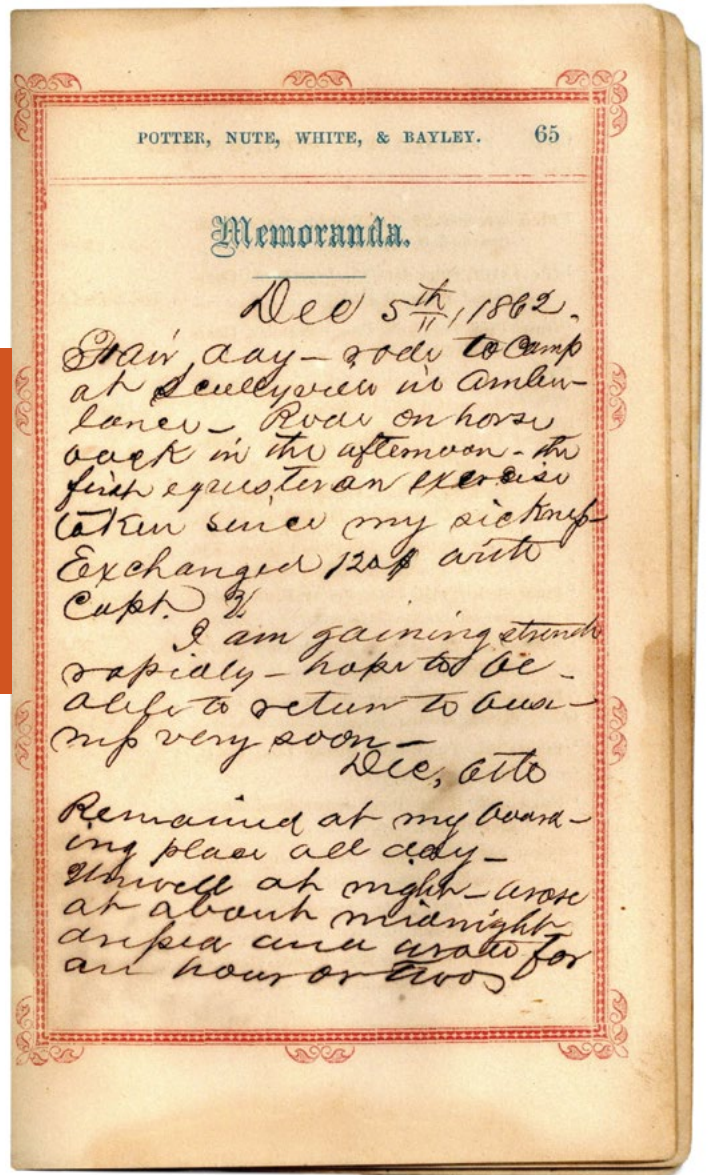 POTTER, NUTE, WHITE, & BAYLEY. 65
Memoranda.
Dec 5th, 1862.
Fair day – rode to Camp
at Scullyville in Ambu-
lance – Rode on horse
back in the afternoon – the
first equesterian exercise
taken since my sickness
Exchanged 120$ with
Capt.
I am gaining strength
rapidly – hope to be
able to return to busi-
ness very soon –
Dec, 6th
Remained at my board-
ing place all day –
Unwell at night – arose
at about midnight
dressed and wrote for
an hour or two